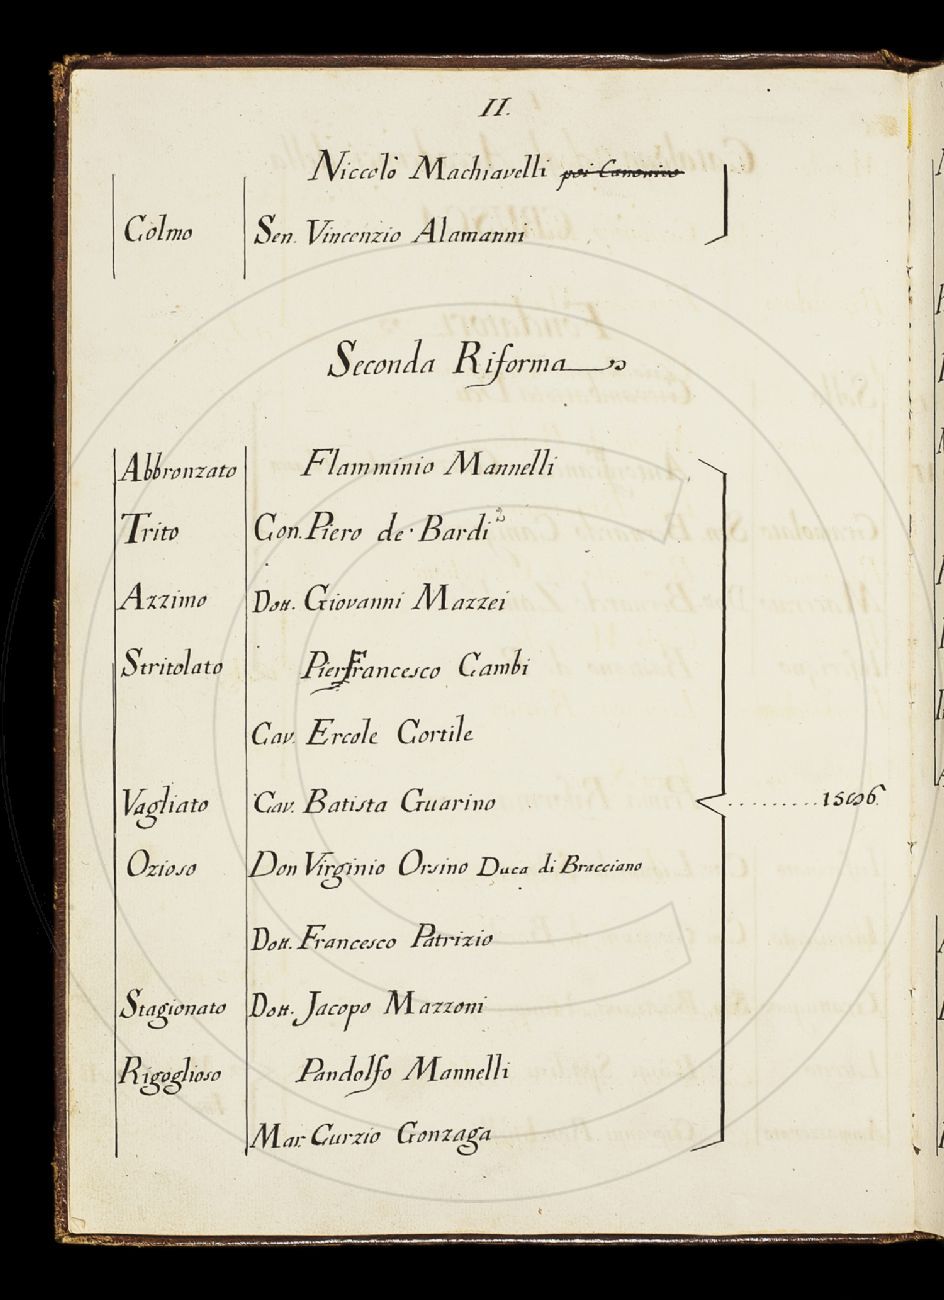 II.
Niccolò Machiavelli poi Canonico
Colmo Sen. Vincenzio Alamanni
Seconda Riforma
Abbronzato Flamminio Mannelli
Trito Con. Piero de' Bardi
Azzimo Dott. Giovanni Mazzei
Stritolato Pier Francesco Cambi
Cav. Ercole Cortile
Vagliato Cav. Batista Guarino
Ozioso Don Virginio Orsino Duca di Bracciano
Dott. Francesco Patrizio
Stagionato Dott. Jacopo Mazzoni
Rigoglioso Pandolfo Mannelli
Mar. Curzio Gonzaga